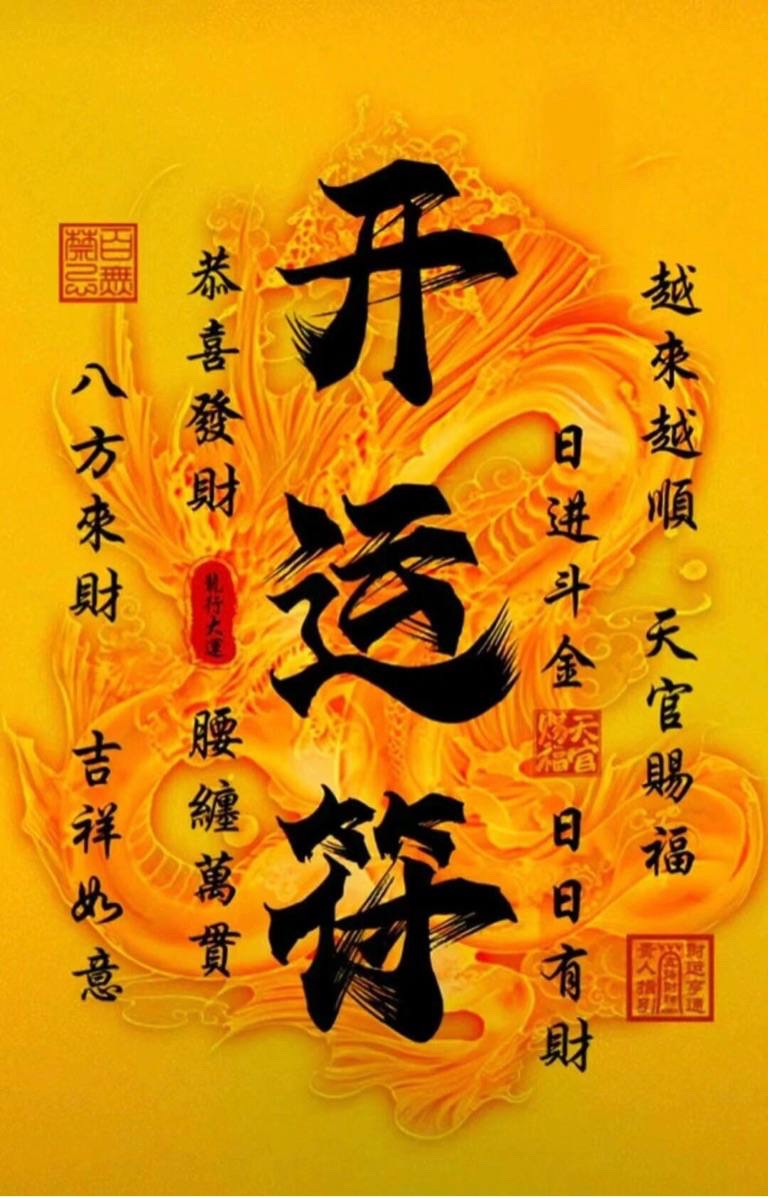 开运符
越來越順 天官賜福
日进斗金
天官
賜福
日日有財
恭喜發財
龍行大運
腰纏萬貫
百無
禁忌
八方來財 吉祥如意
財运亨通
貴人指引